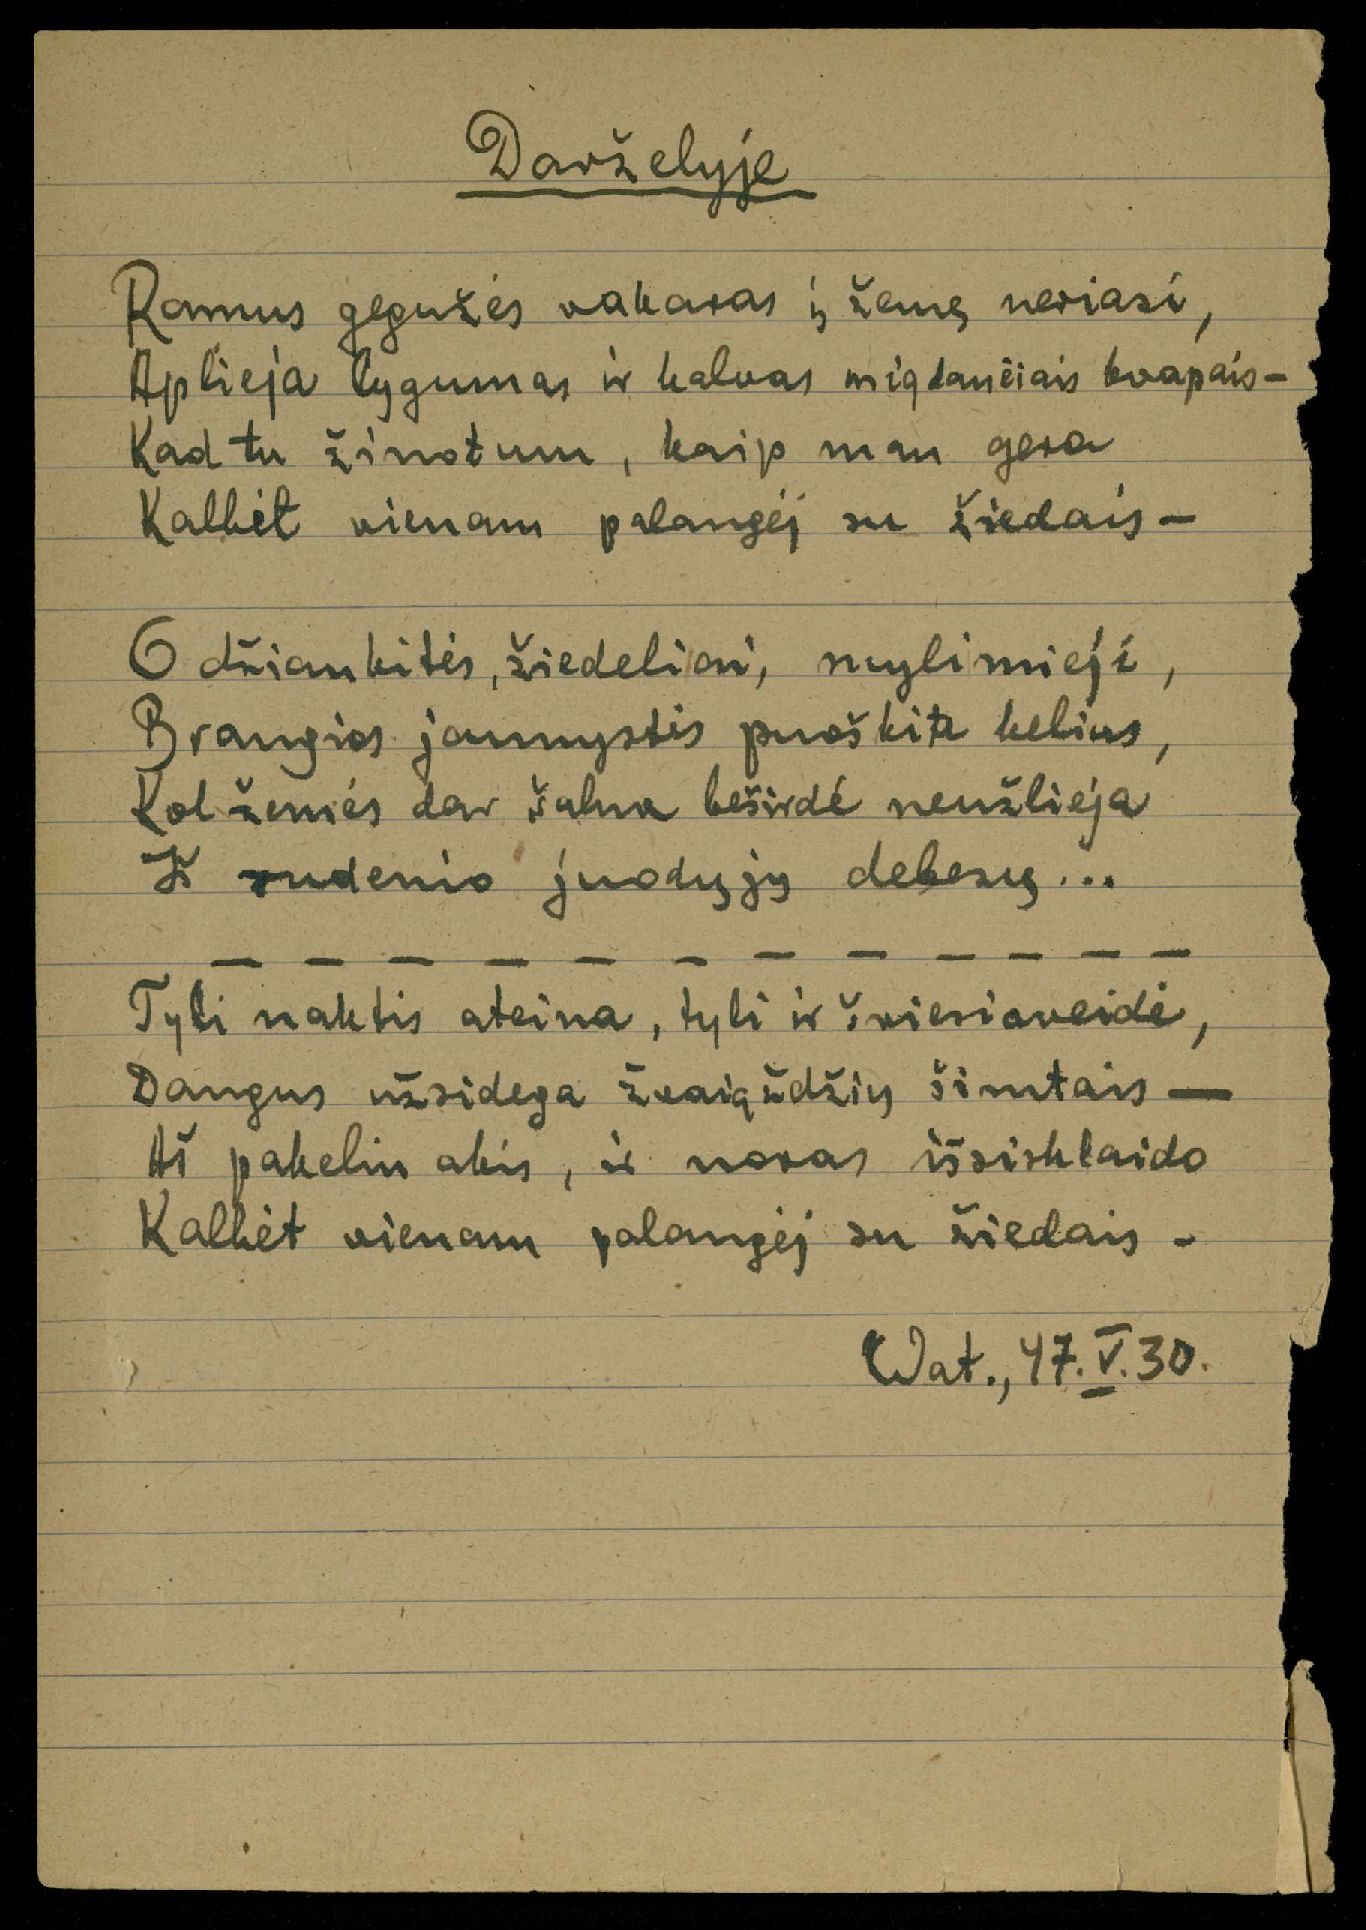 Darželyje
Ramus gegužės vakaras į žemę neriasi,
Aplieja lygumas ir kalvas migdančiais kvapais –
Kad tu žinotum, kaip man gera
Kalbėt vienam palangėj su žiedais –
O džiaukitės, žiedeliai, mylimieji,
Brangios jaunystės puoškite kelius,
Kol žemės dar šalna beširdė neužlieja
Iš rudenio juodųjų debesų...
— — — — — — — — — — — —
Tyli naktis ateina, tyli ir šviesiaveidė,
Dangus užsidega žvaigždžių šimtais —
Aš pakeliu akis, ir noras išsisklaido
Kalbėt vienam palangėj su žiedais –
Wat., 47.V.30.